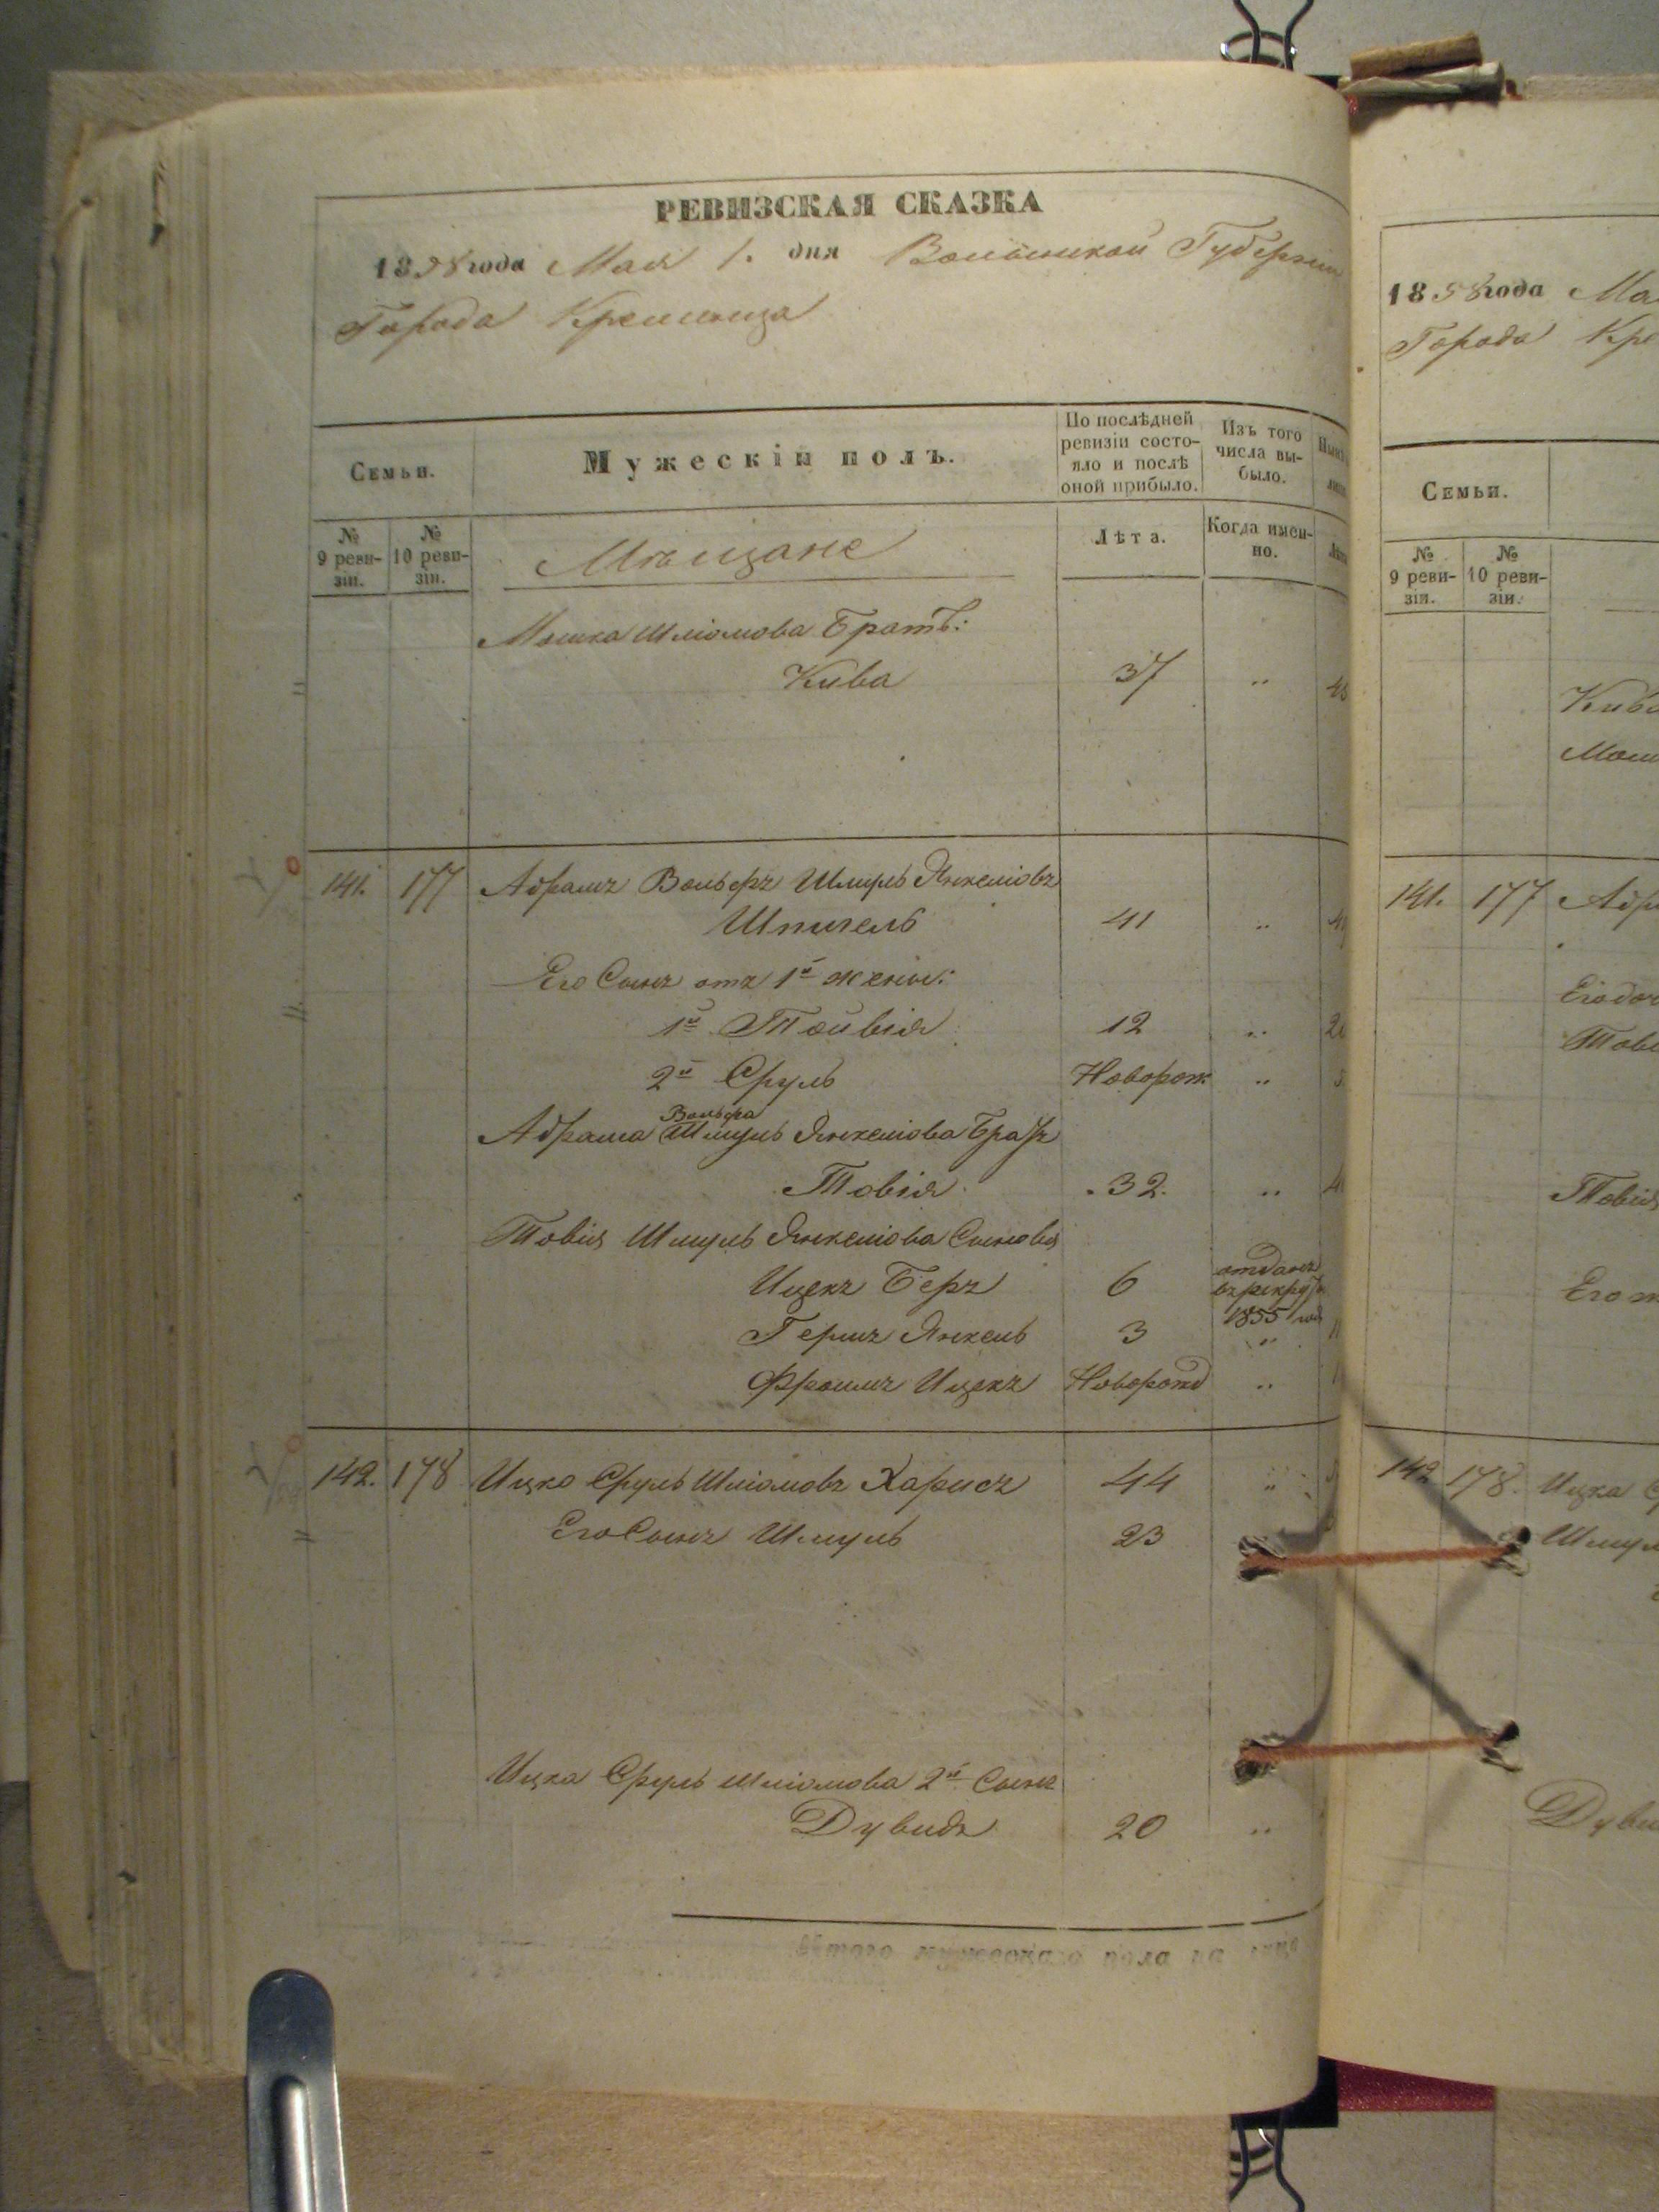 РЕВИЗСКАЯ СКАЗКА
1858 года Мая 1. дня Волынской Губернии
Города Кременца
Семьи.
Мужескій полъ.
По послѣдней ревизіи состо-
яло и послѣ
оной прибыло.
Изъ того
числа вы-
было.
№
9 реви-
зіи.
№
10 реви-
зіи.
Мѣщане
Лѣта.
Когда имен-
но.
Мошка Шліомова Братъ:
Кива 37 "
141. 177 Абрамъ Вольфъ Шмуль Янкеліовъ
Шпигель 41 "
Его Сынъ отъ 1й жены:
1й Тойвія 12 "
2й Сруль Новорож. "
Вольфа
Абрама Шмуль Янкеліова Братъ
Товія 32. "
Товія Шмуль Янкеліова Сыновья
Ицекъ Беръ 6 отданъ
въ рекруты
1855 года
Гершъ Янкель 3 "
Фроимъ Ицекъ Новорожд "
142. 178 Ицко Сруль Шліомовъ Харисъ 44 "
Его Сынъ Шмуль 23
Ицка Сруль Шліомова 2й Сынъ
Дувидъ 20 "
Итого мужескаго пола на лицо
1858 года
Города
Семьи.
№
9 реви-
зіи.
№
10 реви-
зіи.
141. 177
Товія
142 178. Ицка